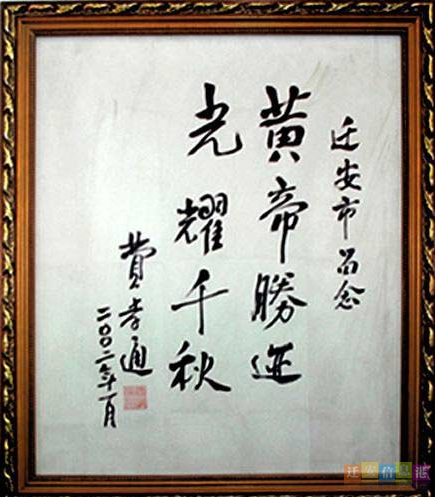 迁安市留念
黄帝勝迹
光耀千秋
費孝通
二〇〇二年一月
迁安信息港